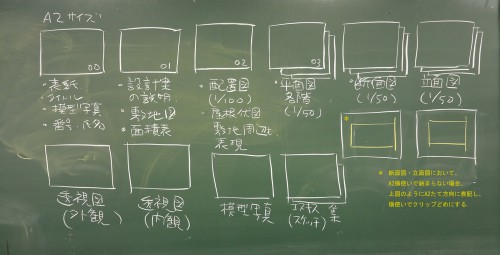 A2サイズ
00
・表紙
タイトル
・模型写真
・番号、氏名
01
・設計主旨
の説明
・敷地図
・面積表
02
・配置図
(1/100)
・屋根伏図
敷地周辺
表現
03
・平面図
各階
(1/50)
・断面図
(1/50)
立面図
(1/50)
透視図
(外観)
透視図
(内観)
模型写真
エスキス
(スケッチ)
集
※
※ 断面図・立面図において、
A2横使いで納まらない場合、
上図のようにA2たて方向に表記し、
横使いでクリップどめにする。